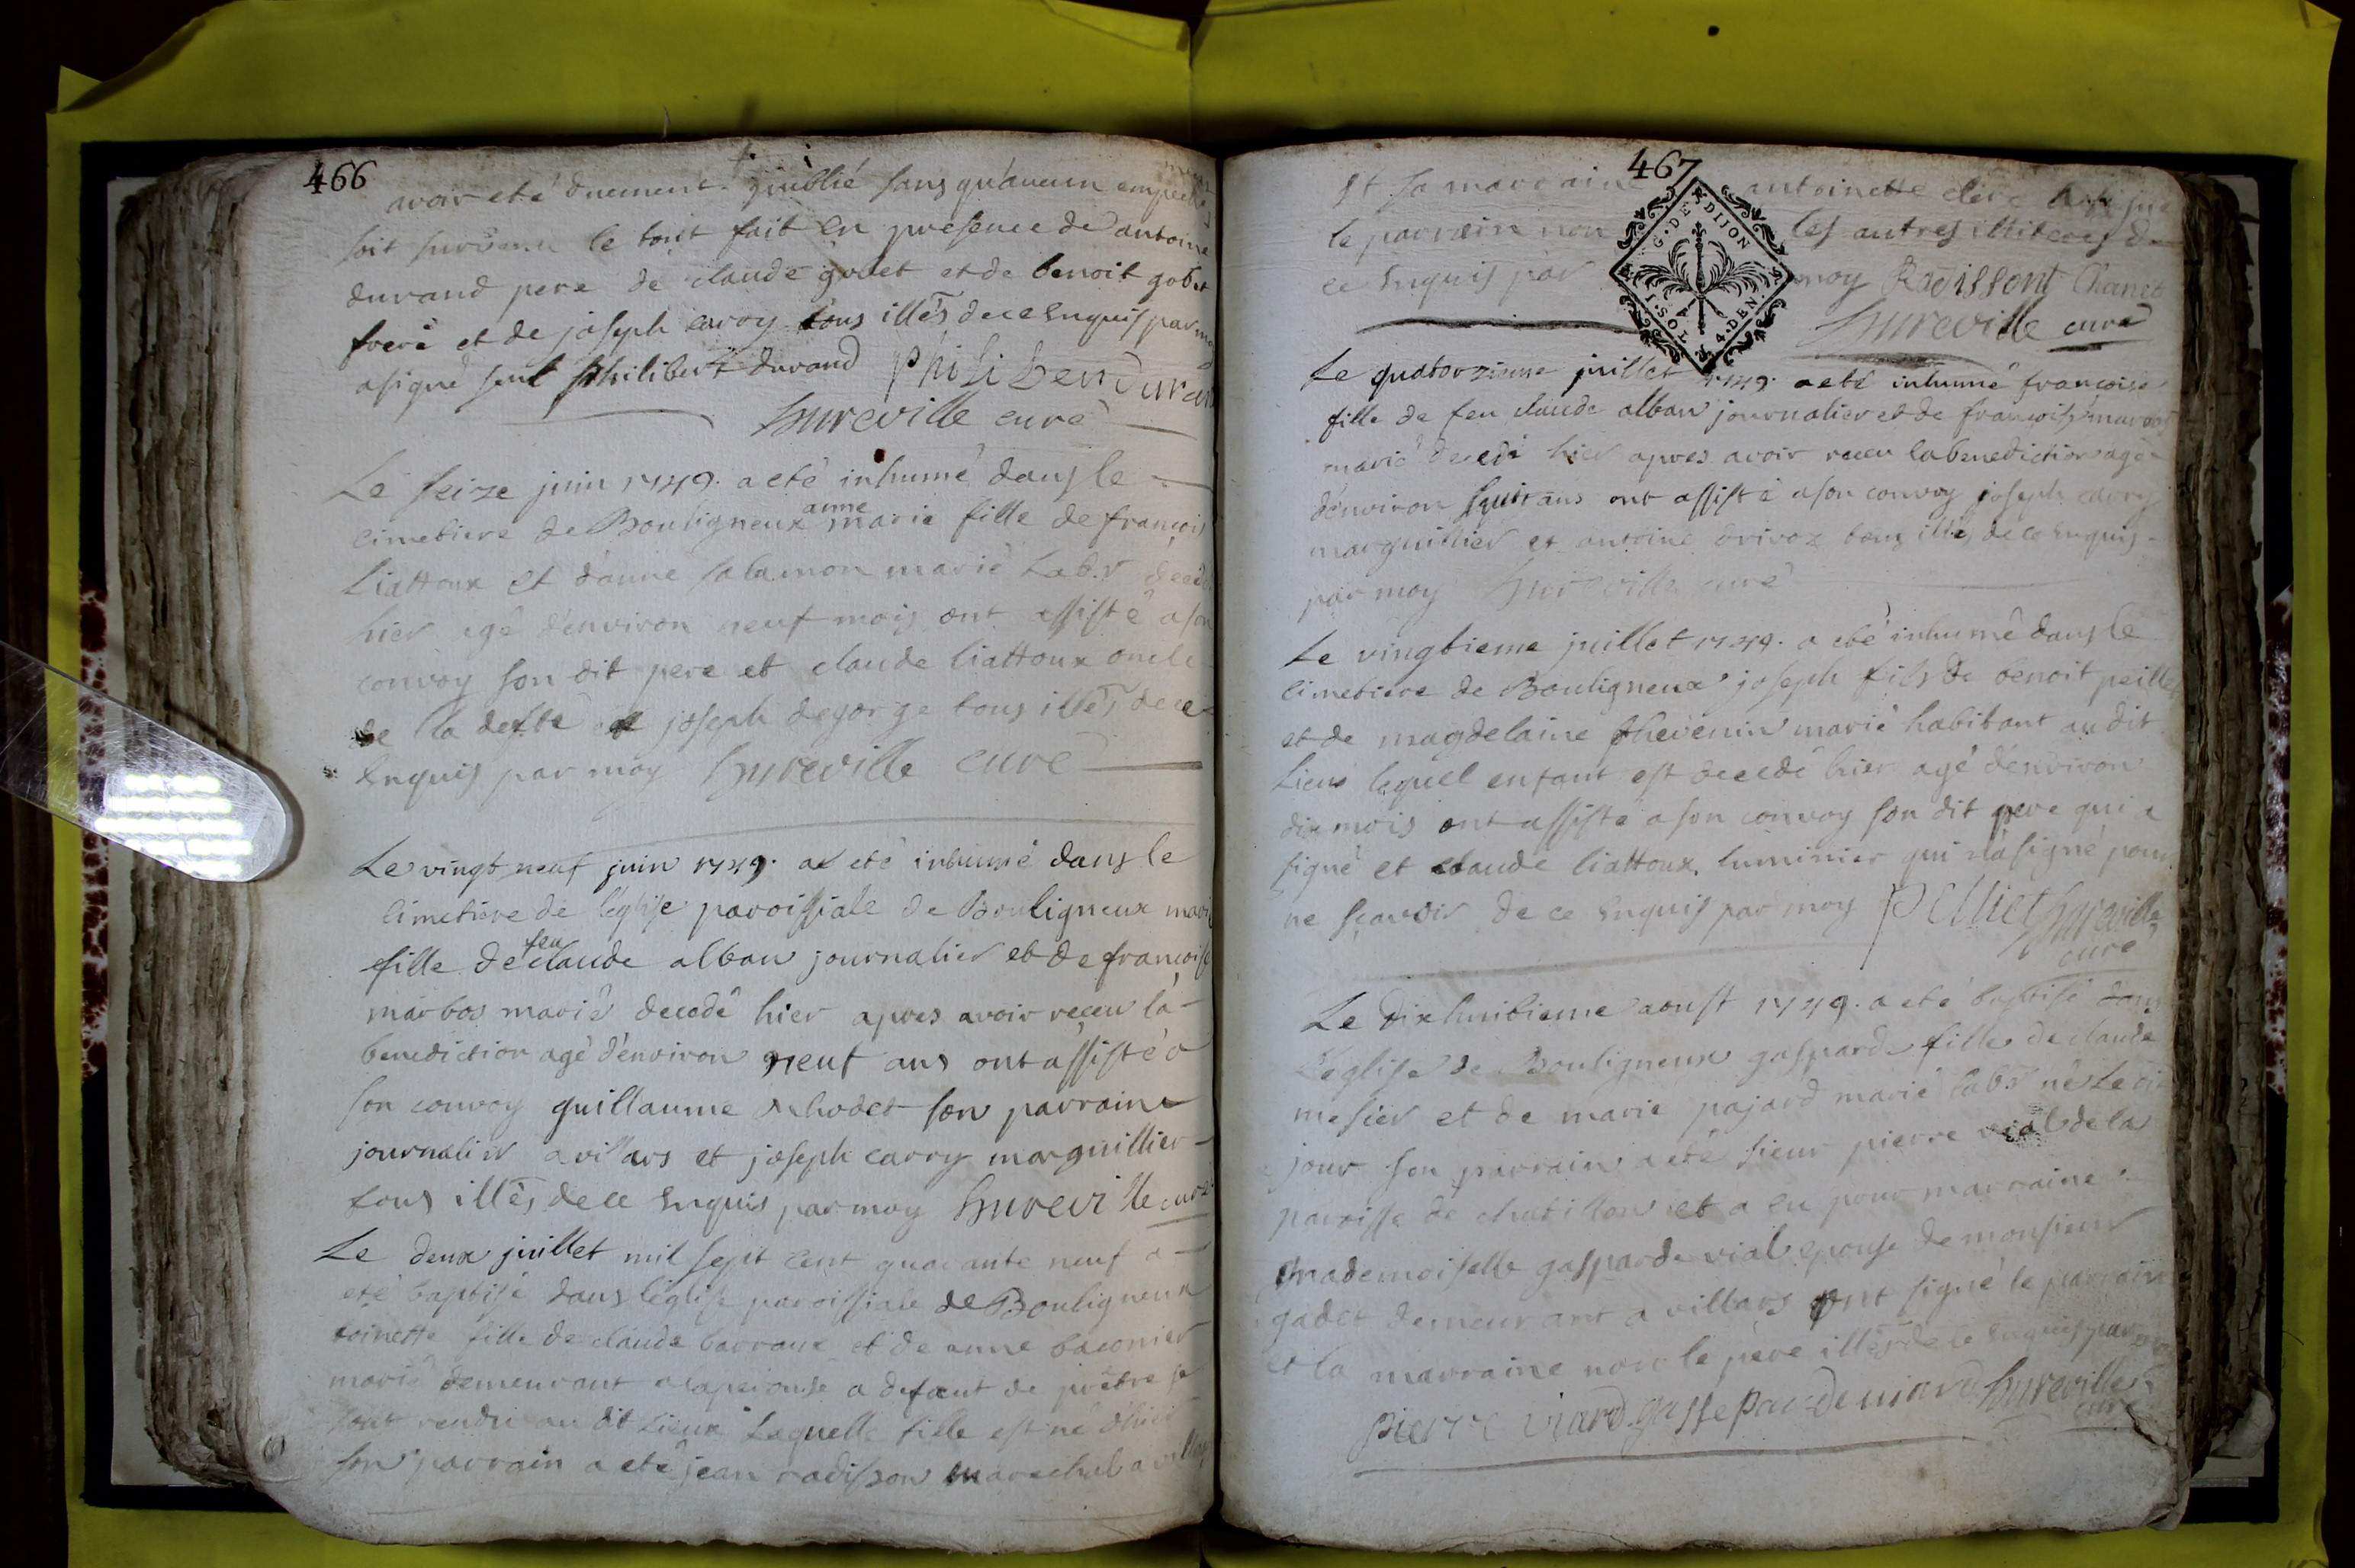 466
avoir eté duement publié sans qu'aucun empeche
mens
soit survenu le tout fait en presence de antoine
durand pere de claude gobet et de benoit gobet
frere et de joseph caroy tous illés de ce Enquis par moy
a signé seul philibert durand philiber Duran
hureville curé
Le seize juin 1749. a eté inhumé dans le
cimetiere de Bouligneux anne marie fille de françois
Liattoux et d'anne salamon marié Lab.r decedé
hier agé d'environ neuf mois ont assisté a son
convoy son dit pere et claude liattoux oncle
de la defte et joseph degorge tous illés de ce
Enquis par moy hureville curé
Le vingt neuf juin 1749. a eté inhumé dans le
cimetiere de l'eglise paroissiale de Bouligneux marie
fille de feu claude alban journalier et de françoise
marbos marié decedé hier apres avoir receu la
benediction agé d'environ neuf ans ont assisté a
son convoy guillaume son parrain
journalier a villars et joseph carry marguillier
tous illés de ce Enquis par moy hureville curé
Le deux juillet mil sept cent quarante neuf a
eté baptisé dans l'eglise paroissiale de Bouligneux
toinette fille de claude barraux et de anne baconier
marié demeurant a laperouse a defaut de prêtre se
sont rendu au dit Lieux Laquelle fille est né d'hier
son parrain a eté jean radisson marechal a villars
467
et sa marraine antoinette clerc
le parrain non les autres illiteres de
ce Enquis par moy Radissont Chanet
hureville curé
G. DE DIJON
4. DEN
I. SOL
Le quatorzieme juillet 1749. a eté inhumé françoise
fille de feu claude alban journalier et de françoise marbos
marié decedé hier apres avoir receu la benediction agé
d'environ ans ont assisté a son convoy joseph carry
marguillier et antoine orivoz tous illés de ce Enquis
par moy hureville curé
Le vingtieme juillet 1749. a eté inhumé dans le
cimetiere de Bouligneux joseph fils de benoit peillet
et de magdelaine thevenin marié habitant au dit
Lieux lequel enfant est decedé hier agé d'environ
dix mois ont assisté a son convoy son dit pere qui a
signé et claude liattoux luminier qui n'a signé pour
ne sçavoir de ce Enquis par moy Pelliet hureville
curé
Le dixhuitieme aoust 1749. a eté baptisé dans
l'eglise de Bouligneux gasparde fille de claude
mesier et de marie pajard marié lab.r né Le dit
jour son parrain a eté sieur pierre vial de la
paroisse de chatillon et a eu pour marraine
mademoiselle gasparde vial epouse de monsieur
gadet demeurant a villars ont signé le parrain
et la marraine non le père illés de ce Enquis par moy
pierre viard gasseparde viard hureville
curé